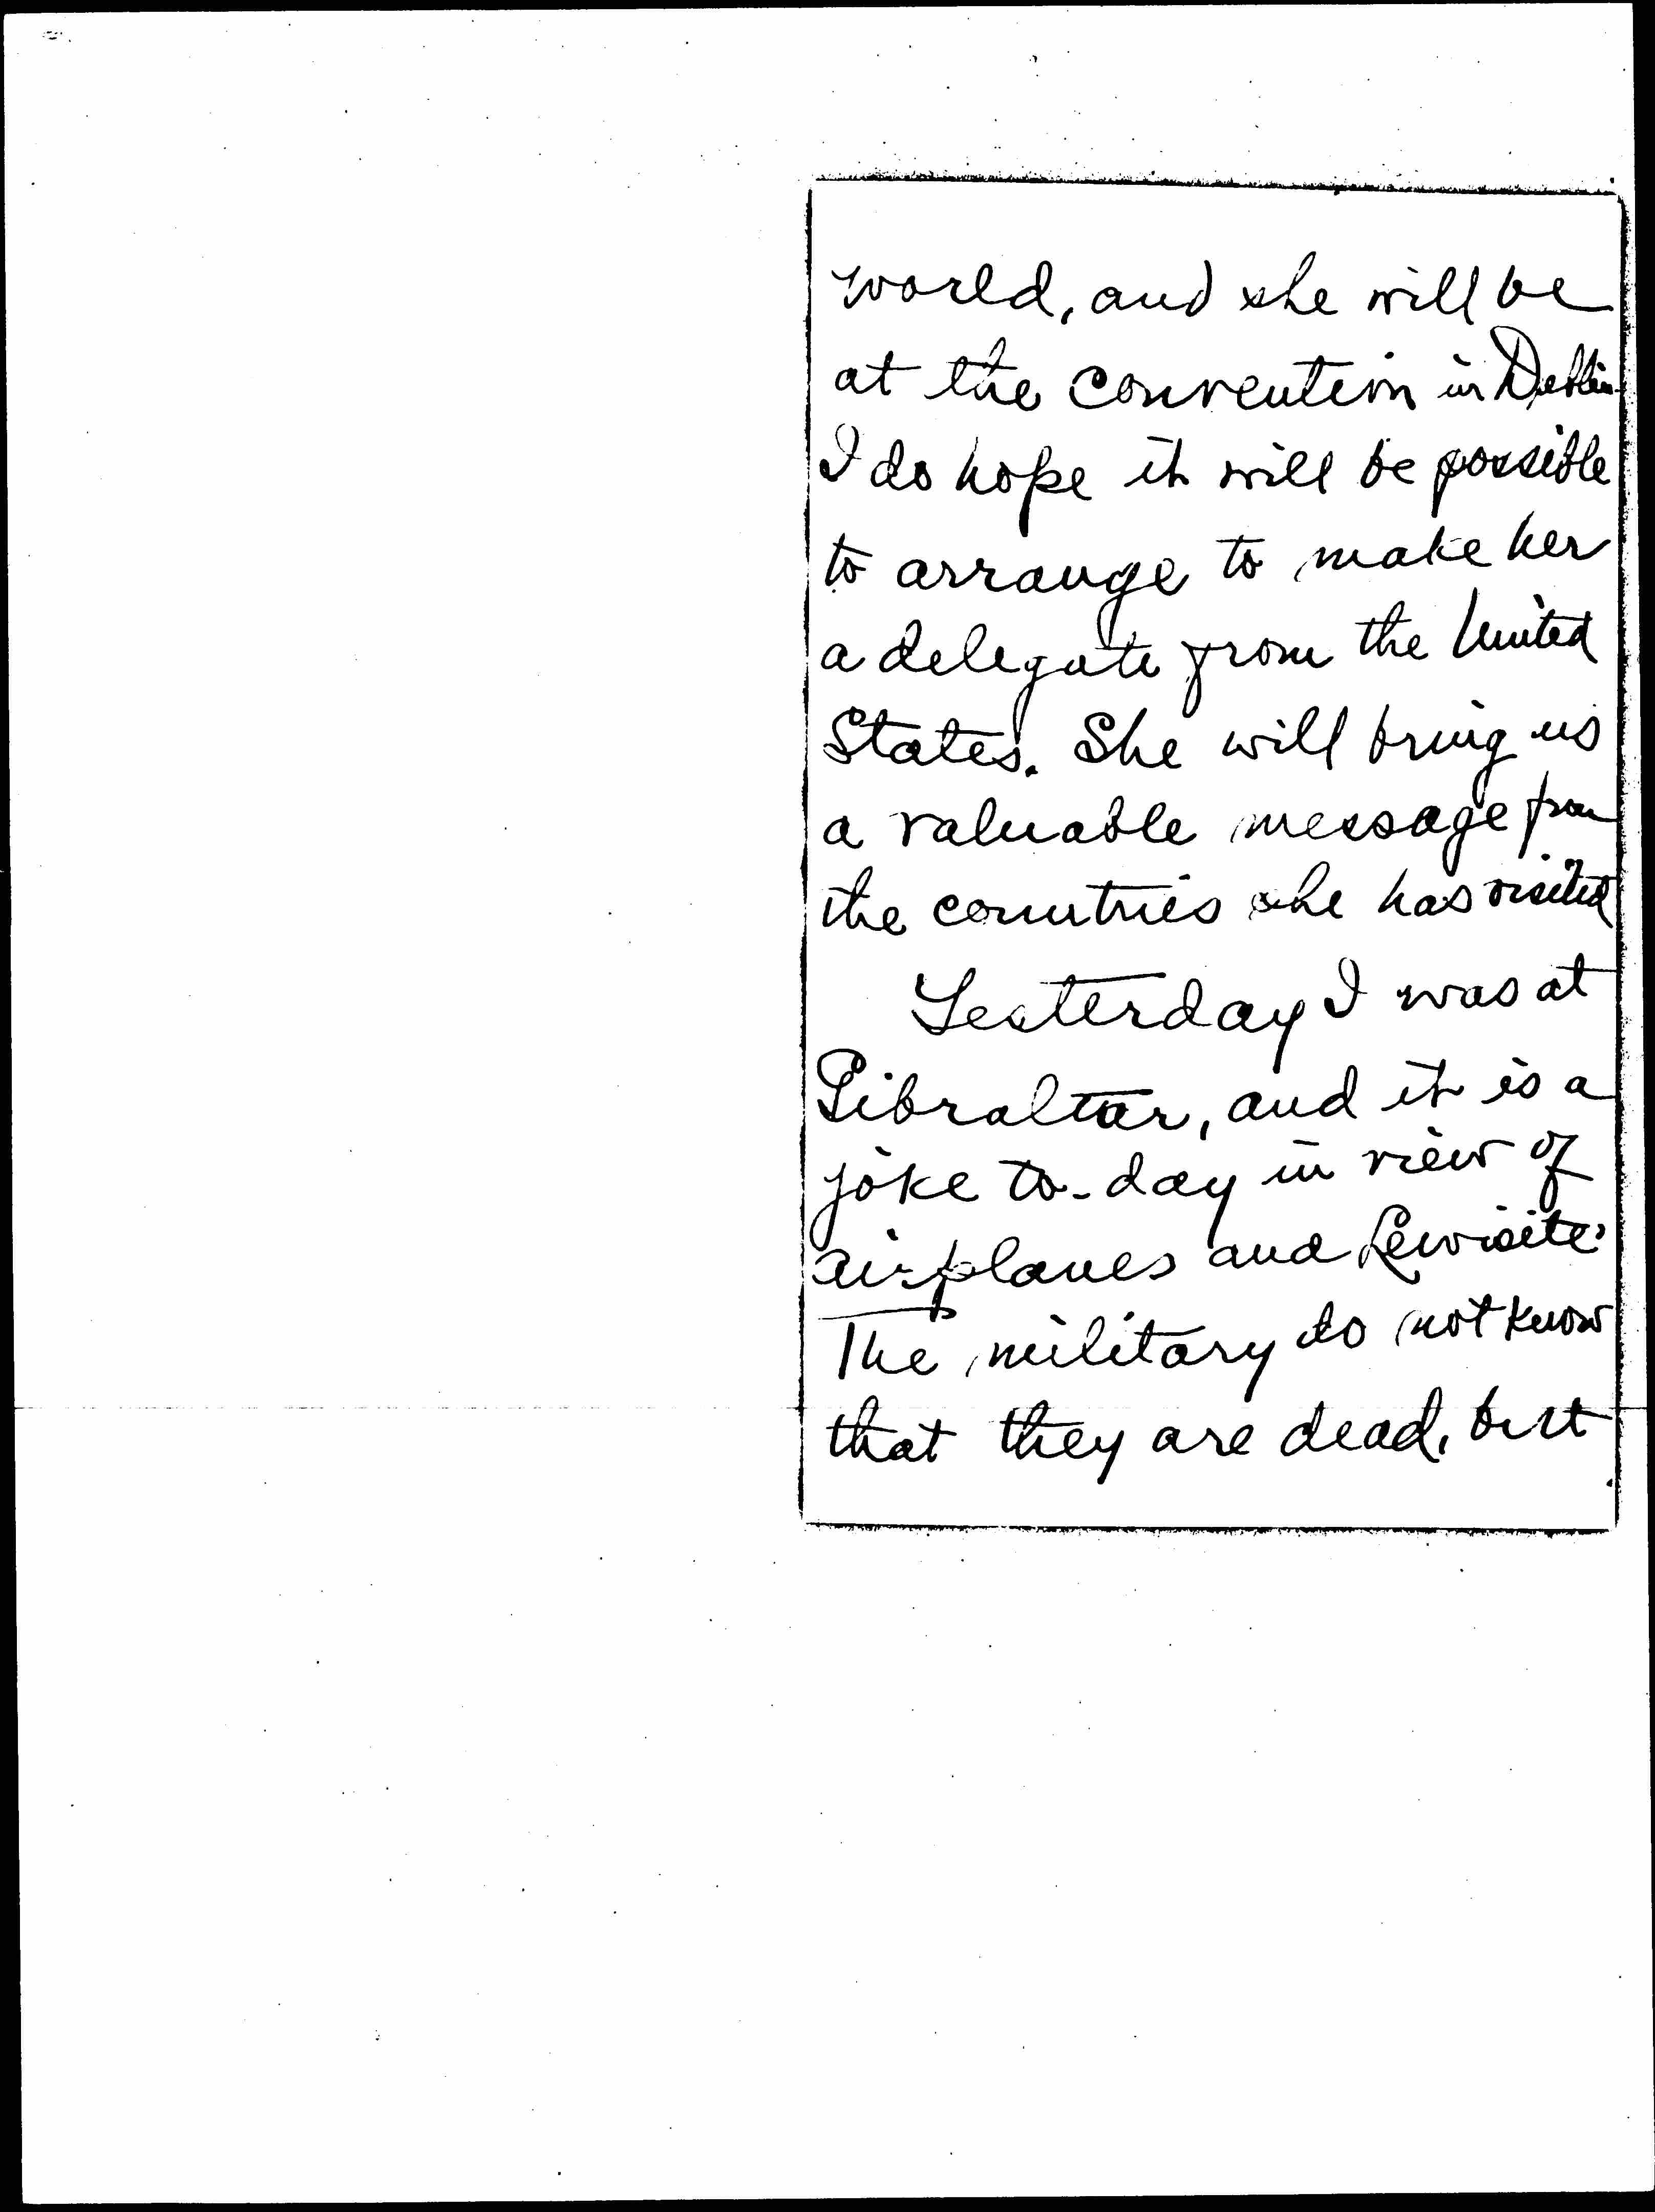 world, and she will be
at the convention in Dublin
I do hope it will be possible
to arrange to make her
a delegate from the United
States. She will bring us
a valuable message from
the countries she has visited
Yesterday I was at
Gibraltar, and it is a
joke to-day in view of
airplanes and Lewisite.
The military do not know
that they are dead, but